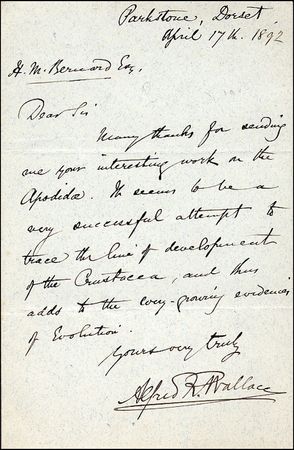 Parkstone, Dorset,
April 17th. 1892
H. M. Bernard Esq.
Dear Sir
Many thanks for sending
me your interesting work on the
Apodidae. It seems to be a
very successful attempt to
trace the line of development
of the Crustacea, and thus
adds to the ever-growing evidences
of Evolution.
Yours very truly
Alfred R. Wallace